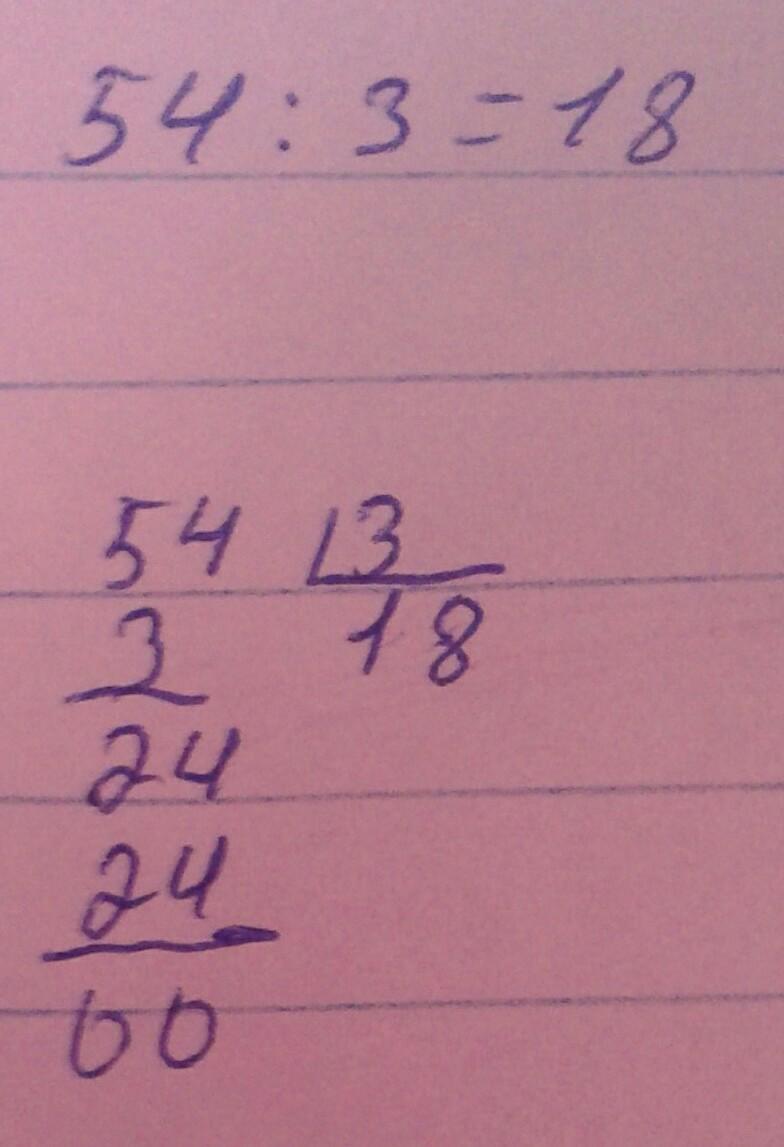 54 : 3 = 18
54 3
3 18
24
24
00